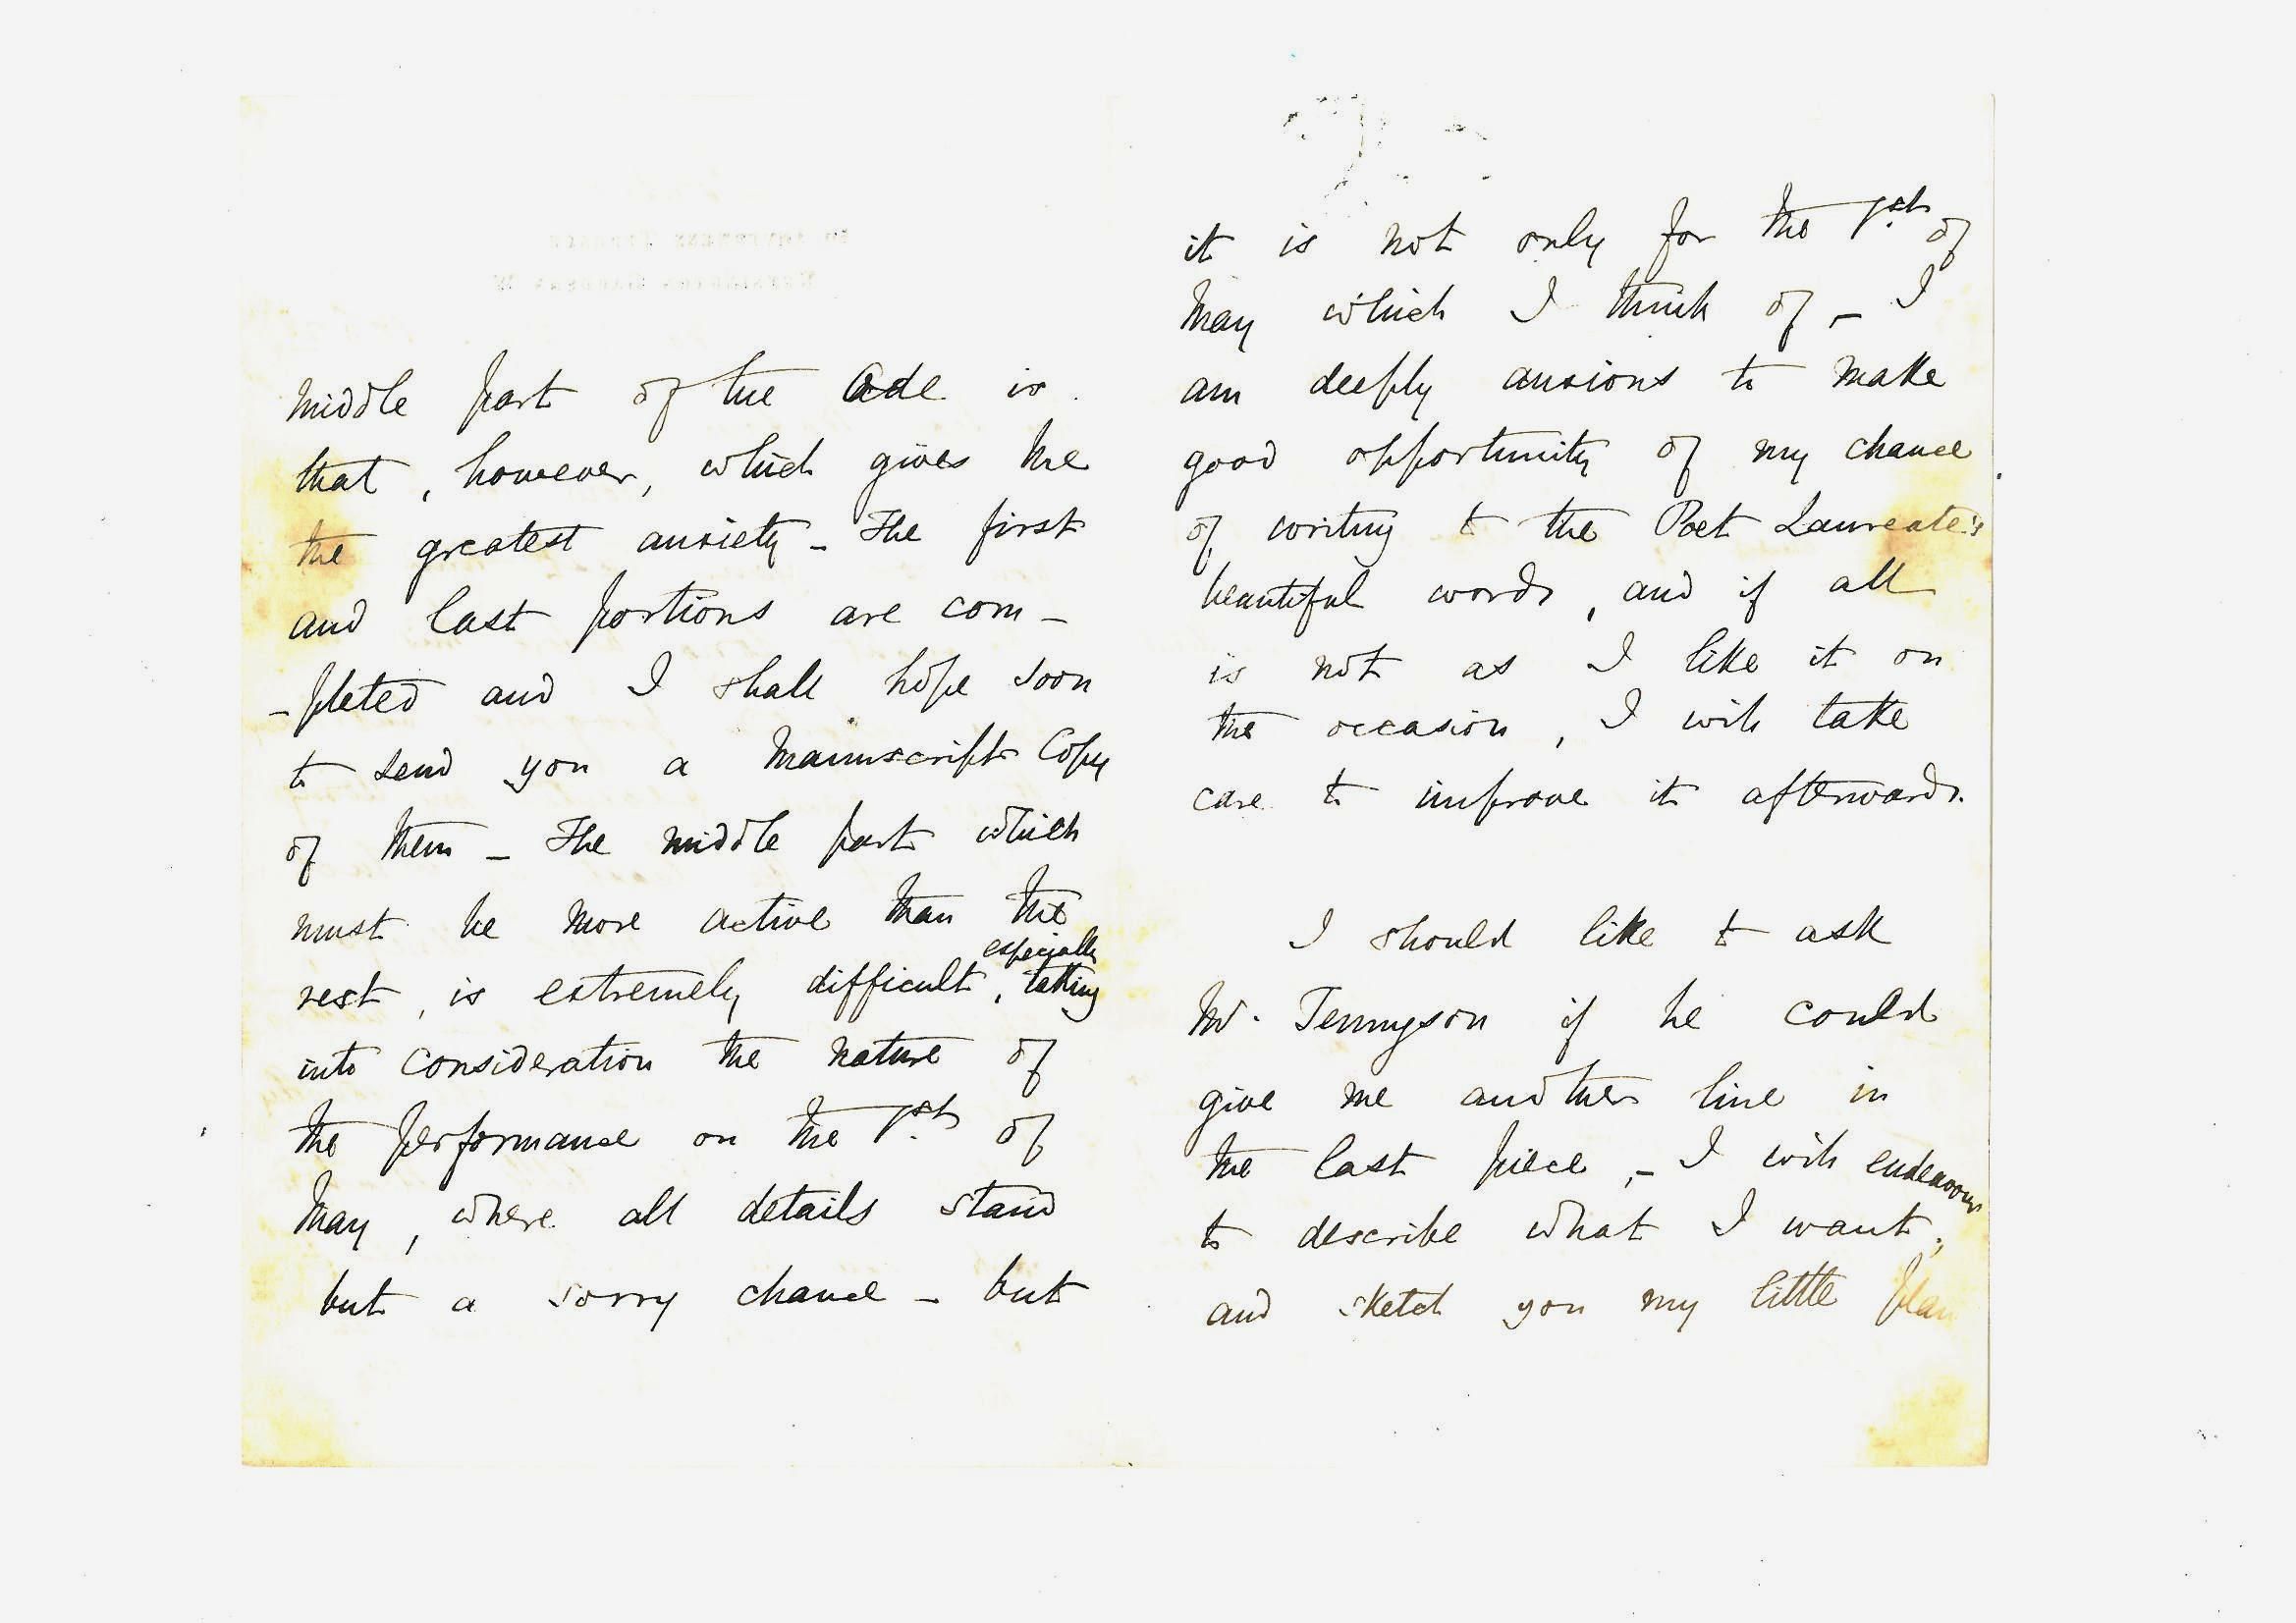 middle part of the Ode is
that, however, which gives me
the greatest anxiety - The first
and last portions are com-
-pleted and I shall hope soon
to send you a Manuscript Copy
of them - The middle part which
must be more active than the
rest, is extremely difficult, especially taking
into consideration the nature of
the performance on the 1st of
May, where all details stand
but a sorry chance - but
it is not only for the 1st of
May which I think of - I
am deeply anxious to make
good opportunity of my chance
of writing to the Poet Laureate's
beautiful words, and if all
is not as I like it on
the occasion, I will take
care to improve it afterwards.
I should like to ask
Mr. Tennyson if he could
give me another line in
the last piece, - I will endeavour
to describe what I want,
and sketch you my little plan